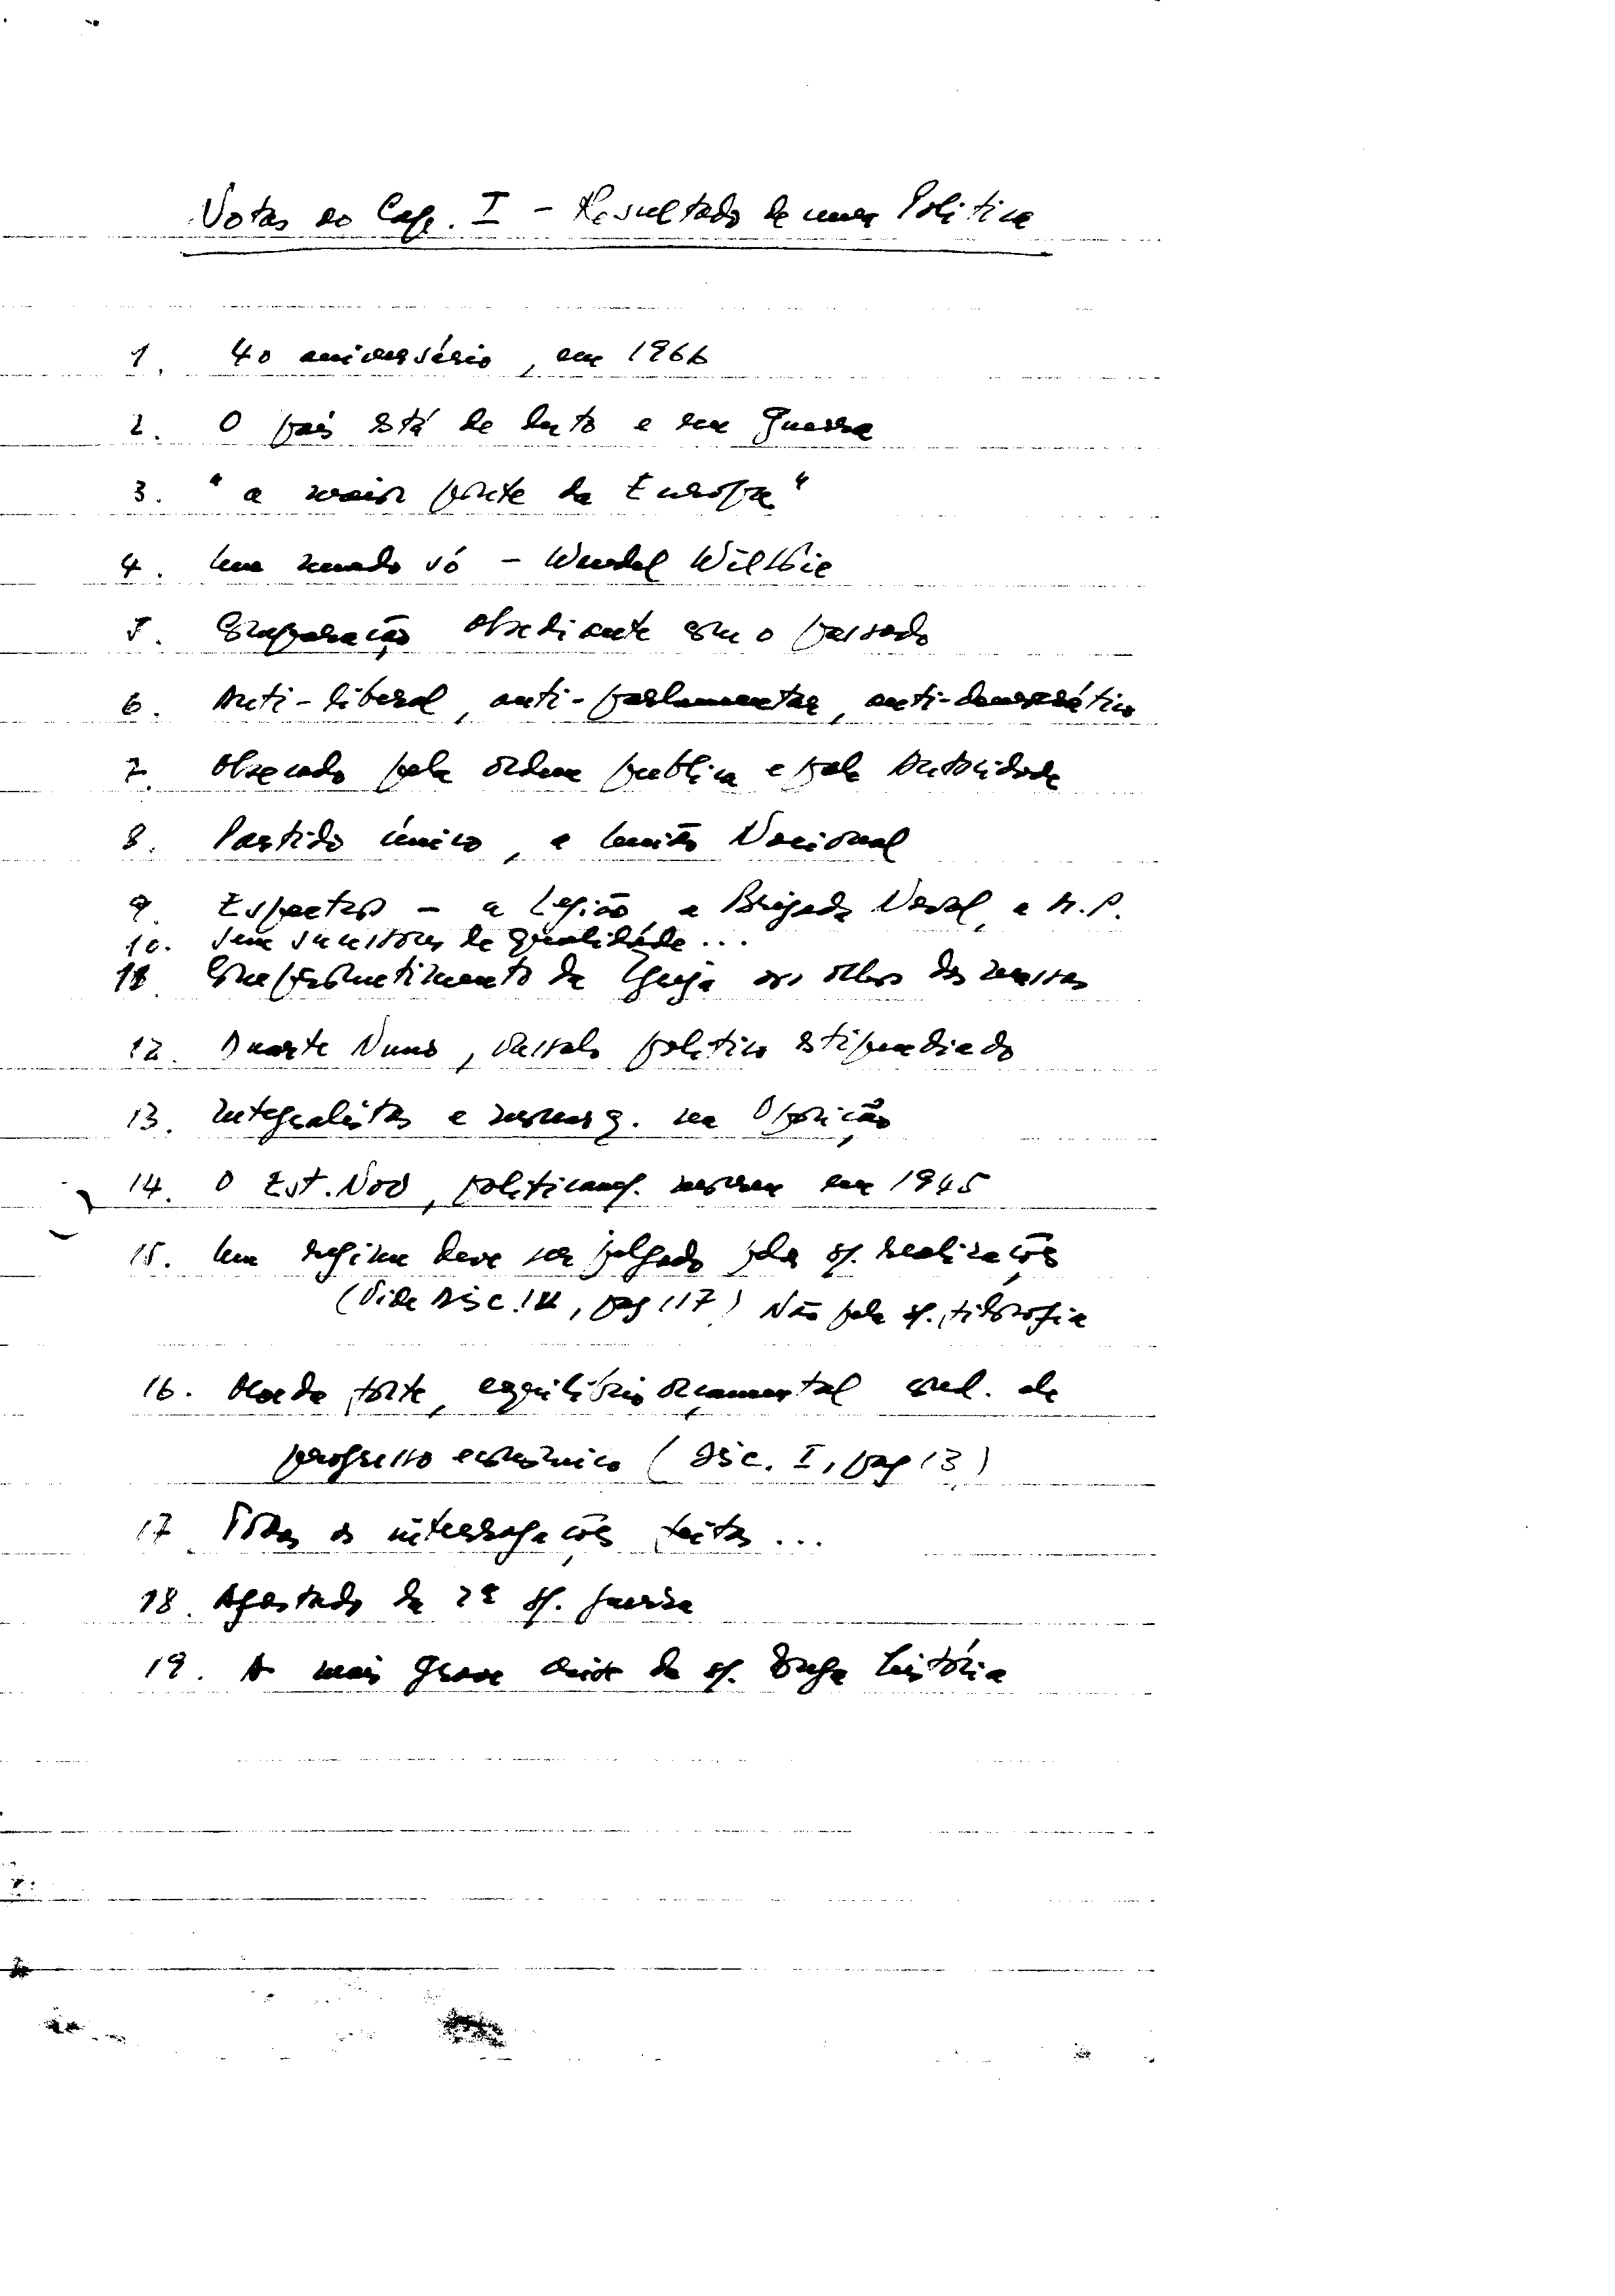 Notas ao Cap. I - Resultado de uma Política
1. 40 aniversário, em 1966
2. O país está de luto e em Guerra
3. "a maior parte da Europa"
4. Um mundo só - Wendel Wilkie
5. Comparação obsediante com o passado
6. Anti-liberal, anti-parlamentar, anti-democrático
7. Obcecado pela ordem publica e pela Autoridade
8. Partido único, a União Nacional
9. Espectros - a Legião, a Brigada Naval, a M.P.
10. Sem sucessores de qualidade...
11. Comprometimento da Igreja aos olhos das massas
12. Duarte Nuno, vassalo politico estipendiado
13. Integralistas e monarq. na Oposição
14. O Est. Novo, politicam. morreu em 1945
15. Um regime deve ser julgado pelas s/. realizações
(Vide Disc. III, pag 117) Não pela s/. filosofia
16. Moeda forte, equilíbrio orçamental cond. de
progresso económico (Disc. I, pag 13)
17 Todas as interrogações feitas...
18. Afastado da 2ª gr. guerra
19. A mais grave crise da s/. longa história